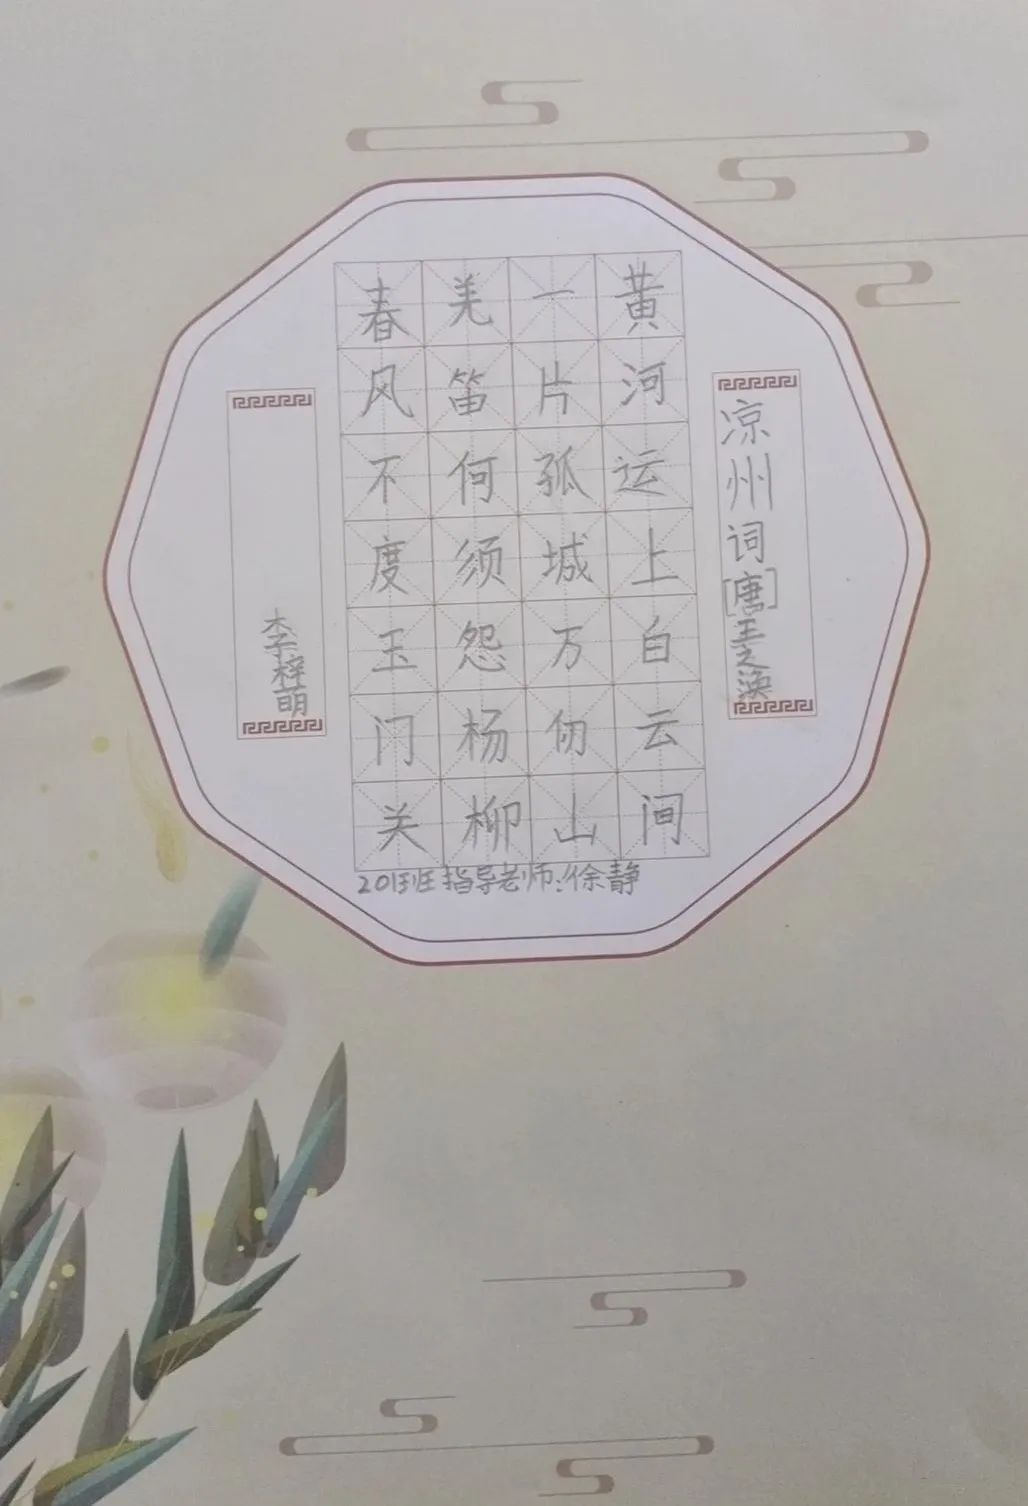 凉州词[唐]王之涣
黄河运上白云间
一片孤城万仞山
羌笛何须怨杨柳
春风不度玉门关
李梓萌
201班指导老师:徐静